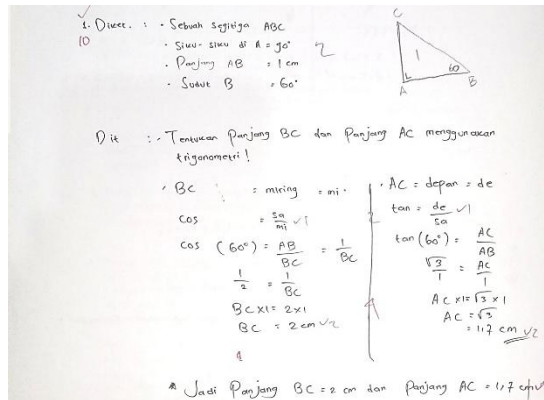 1. Diket. : - Sebuah segitiga ABC
10
- Siku-siku di A = 90°
2
- Panjang AB = 1 cm
- Sudut B = 60°
C
1
60
A
B
Dit :- Tentukan Panjang BC dan Panjang AC menggunakan
trigonometri!
BC = miring = mi.
cos = sa/mi √1
cos (60°) = AB/BC = 1/BC
1/2 = 1/BC
BC x 1 = 2 x 1
BC = 2 cm √2
AC = depan = de
tan = de/sa √1
tan (60°) = AC/AB
√3/1 = AC/1
AC x 1 = √3 x 1
AC = √3
= 1,7 cm √2
* Jadi Panjang BC = 2 cm dan Panjang AC = 1,7 cm